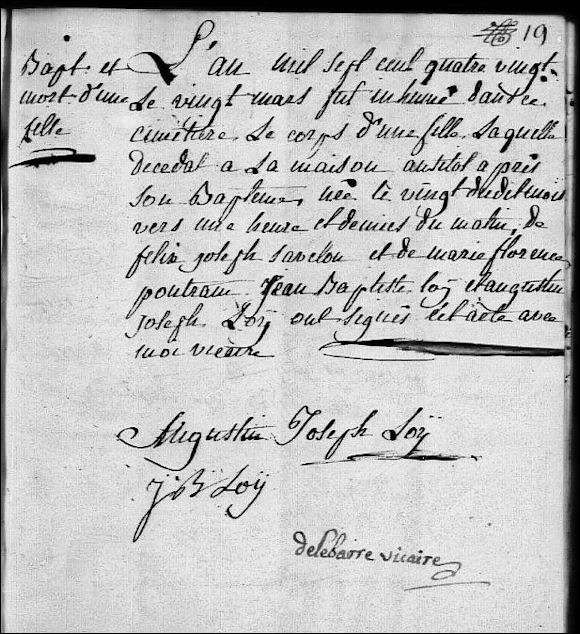 19
Bapt. et
mort d'une
fille
L'an mil sept cent quatre vingt.
Le vingt mars fut inhumé dans ce
cimétiere. Le corps d'une fille Laquelle
decedat a La maison autitot apres
son Bapteme, née le vingt duditmois
vers une heure et demies du matin, de
felix joseph savelon et de marie florence
poutrain. Jean Baptiste loÿ et augustin
joseph Loÿ ont signés cet acte avec
moi vicaire
Augustin Joseph Loÿ
J B Loÿ
delebarre vicaire